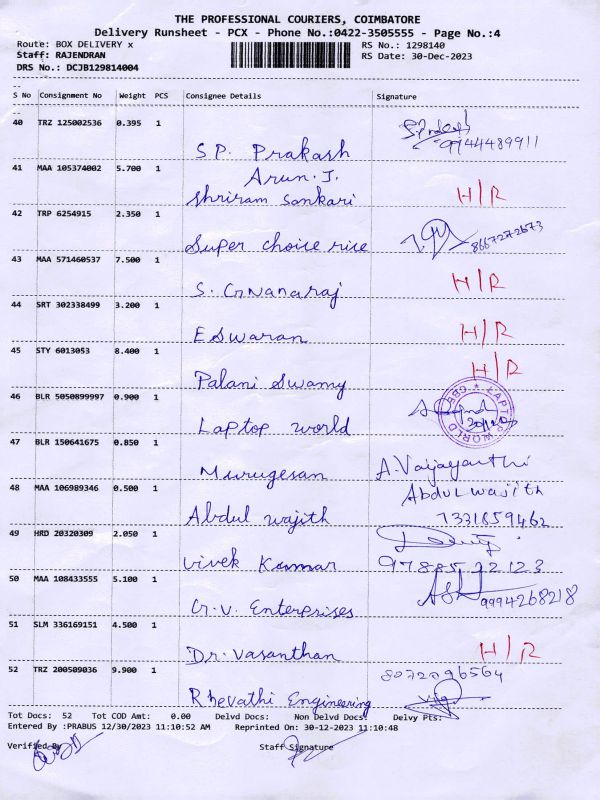 THE PROFESSIONAL COURIERS, COIMBATORE
Delivery Runsheet - PCX - Phone No.:0422-3505555 - Page No.:4
Route: BOX DELIVERY x RS No.: 1298140
Staff: RAJENDRAN RS Date: 30-Dec-2023
DRS No.: DCJB129814004
S No Consignment No Weight PCS Consignee Details Signature
40 TRZ 125002536 0.395 1
9944489911
S.P. Prakash
41 MAA 105374002 5.700 1 Arun.J.
Shriram Sankari H/R
42 TRP 6254915 2.350 1
Super choice rice 8667272673
43 MAA 571460537 7.500 1 H/R
S. GNanaraj
44 SRT 302338499 3.200 1
Eswaran H/R
45 STY 6013053 8.400 1 H/R
Palani Swamy
46 BLR 5050899997 0.900 1
Laptop world LAPTOP WORLD * CBE *
47 BLR 150641675 0.850 1
Murugesan A.Vaijayanthi
48 MAA 106989346 0.500 1 Abdul wajith
Abdul wajith 7331659462
49 HRD 20320309 2.050 1
Vivek Kumar 97885 22123
50 MAA 108433555 5.100 1
G.V. Enterprises 9994268218
51 SLM 336169151 4.500 1
Dr. Vasanthan H/R
52 TRZ 200509036 9.900 1 8072096564
Rhevathi Engineering
Tot Docs: 52 Tot COD Amt: 0.00 Delvd Docs: Non Delvd Docs: Delvy Pts:
Entered By :PRABUS 12/30/2023 11:10:52 AM Reprinted On: 30-12-2023 11:10:48
Verified By Staff Signature